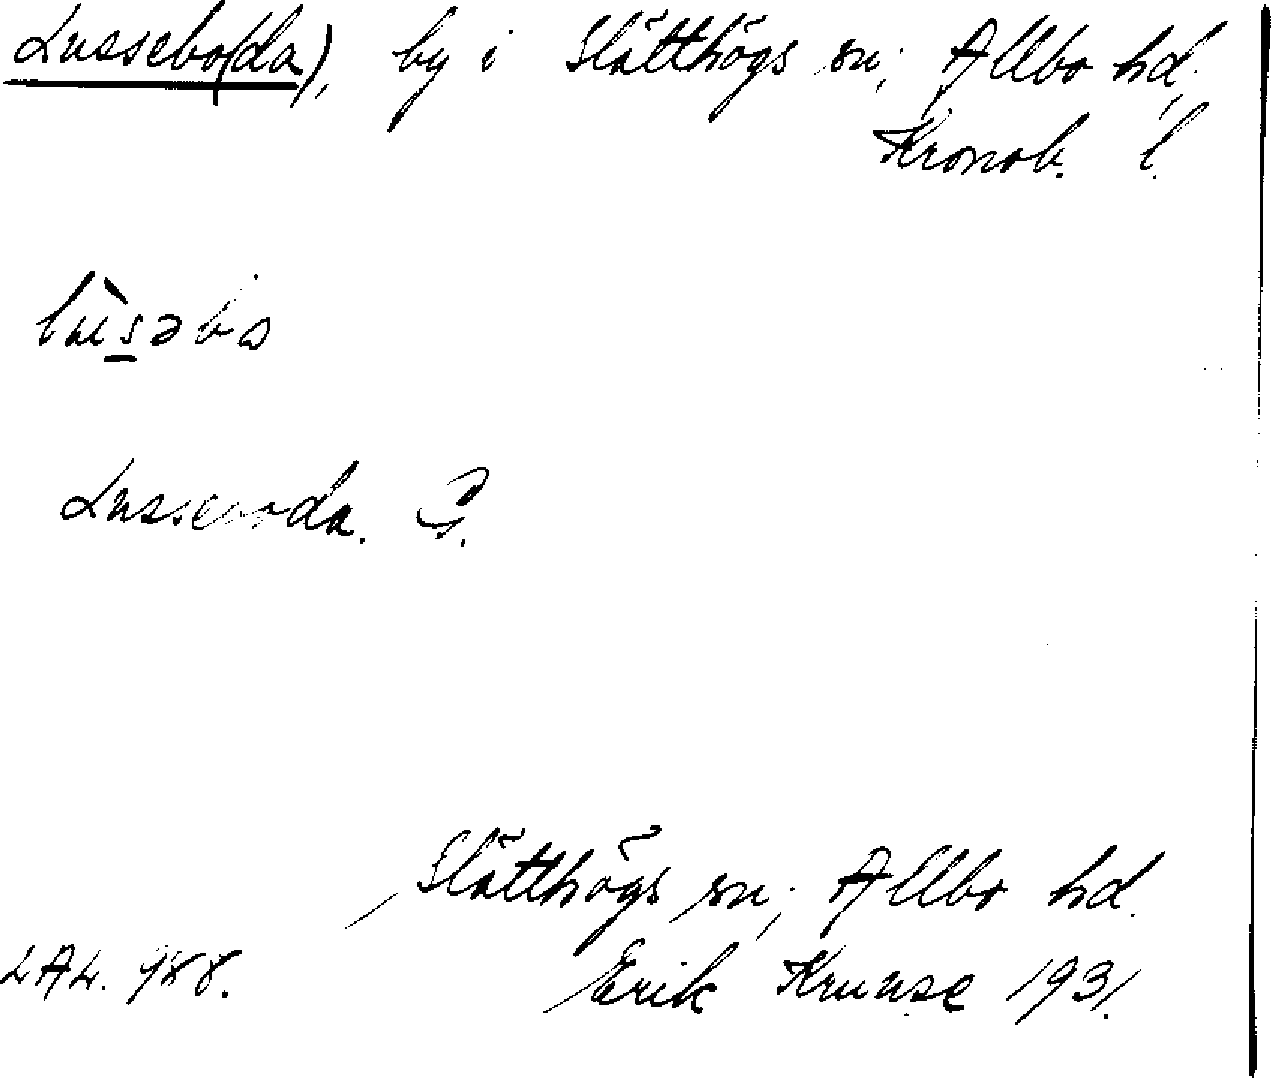 Lussebo(da), by i Slätthögs sn, Allbo hd,
Kronob. l.
lùsəbo
Lusseboda. G.
Slätthögs sn, Allbo hd.
LAL. 988. Erik Krunse 1931.